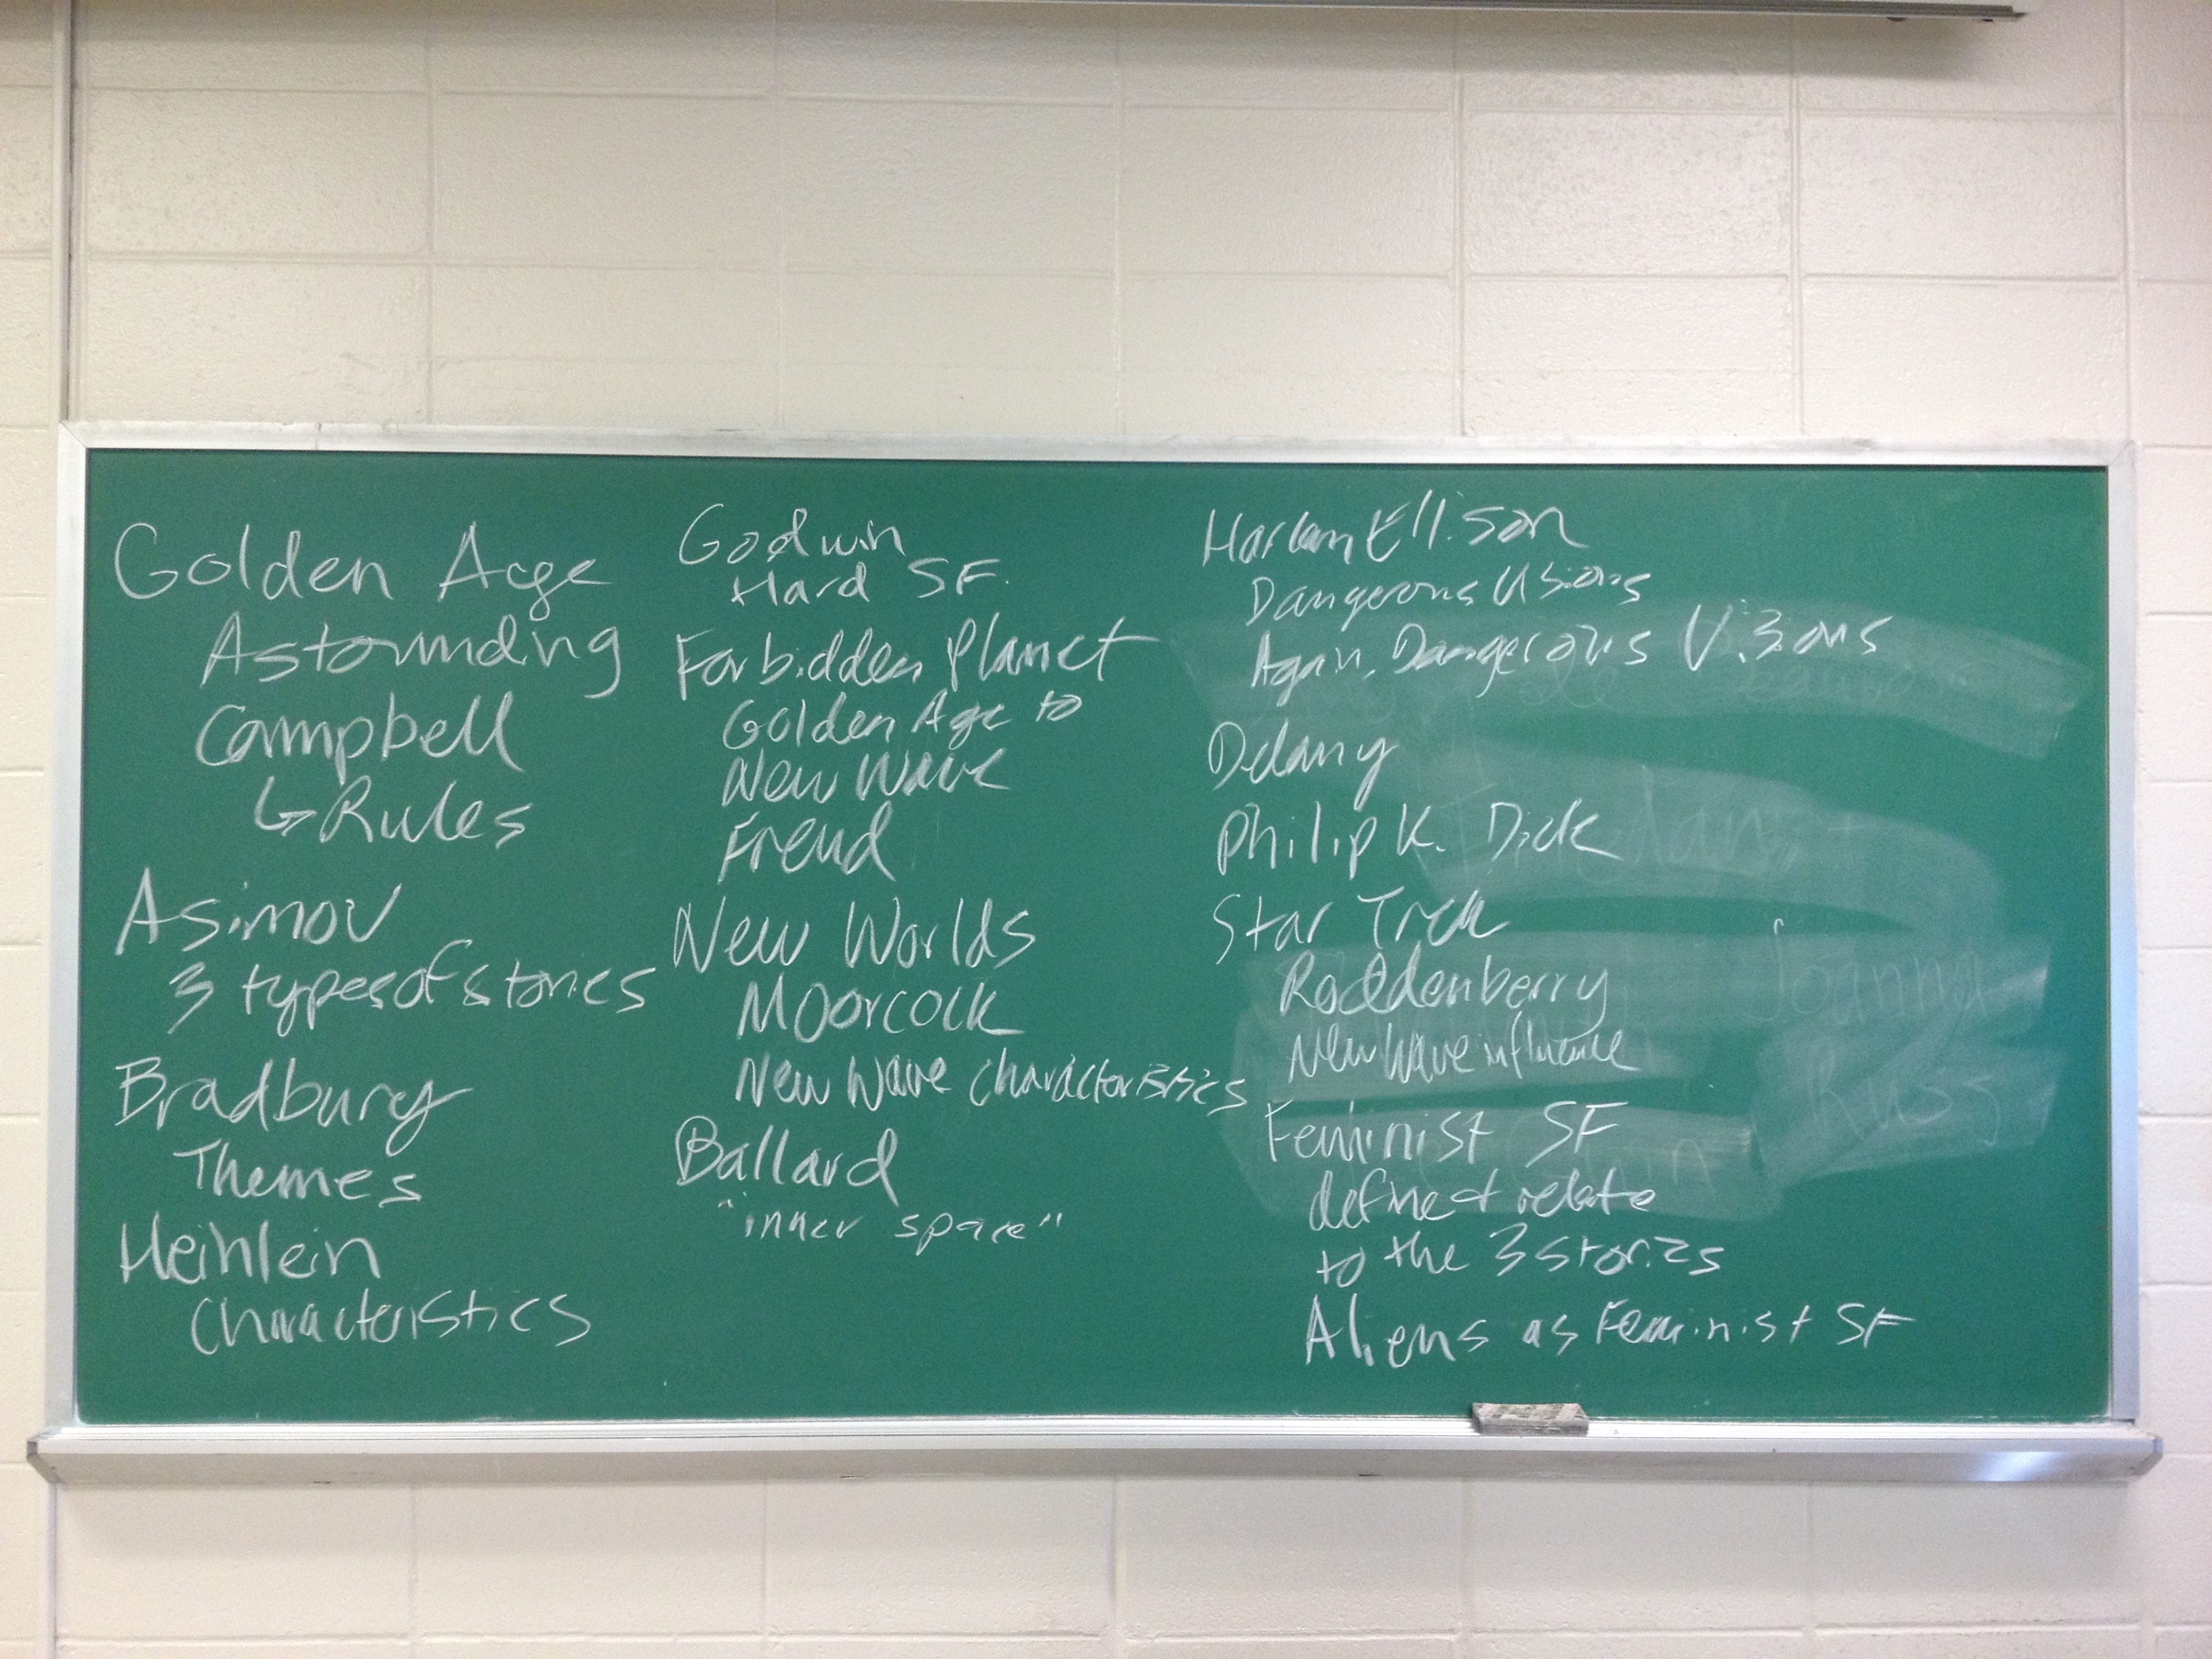 Golden Age
Astounding
Campbell
↳ Rules
Asimov
3 types of stories
Bradbury
Themes
Heinlein
Characteristics
Godwin
Hard SF.
Forbidden Planet
Golden Age to
New Wave
Freud
New Worlds
Moorcock
New Wave Characteristics
Ballard
"inner space"
Harlan Ellison
Dangerous Visions
Again, Dangerous Visions
Delany
Philip K. Dick
Star Trek
Roddenberry
New Wave influence
Feminist SF
define + relate
to the 3 stories
Aliens as Feminist SF
Joanna
Russ